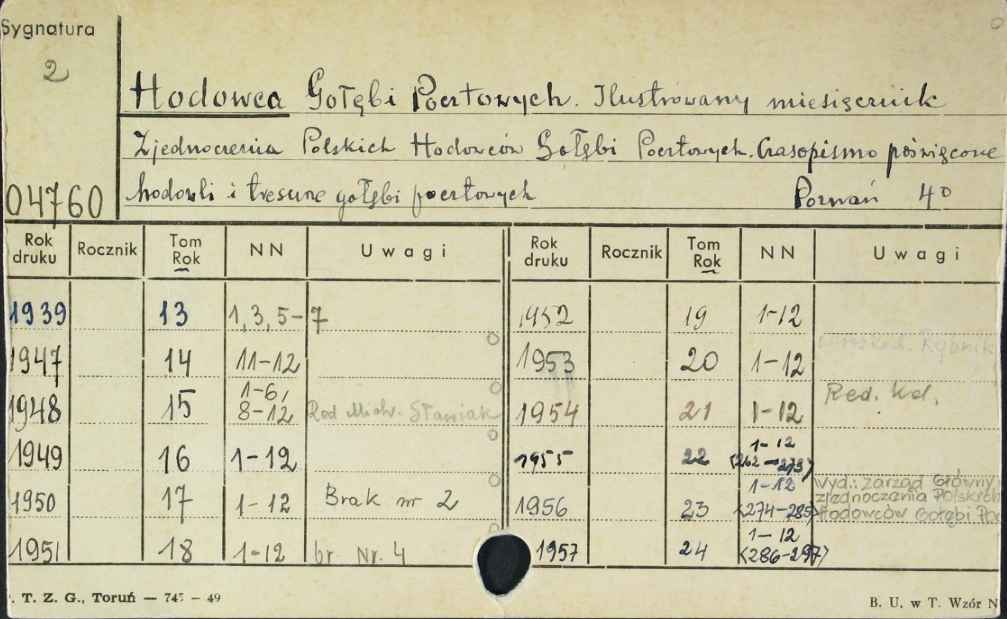 Sygnatura
2
Hodowca Gołębi Pocztowych. Ilustrowany miesięcznik
Zjednoczenia Polskich Hodowców Gołębi Pocztowych. Czasopismo poświęcone
04760 hodowli i tresurze gołębi pocztowych Poznań 4º
Rok druku Rocznik Tom Rok NN Uwagi Rok druku Rocznik Tom Rok NN Uwagi
1939 13 1, 3, 5-7 1952 19 1-12
1947 14 11-12 1953 20 1-12 Rybnik
1948 15 1-6, 8-12 Red. Staniak 1954 21 1-12 Red. kol.
1949 16 1-12 1955 22 1-12 (262-273)
1950 17 1-12 Brak nr 2 1956 23 1-12 (274-285) Wyd.: Zarząd Główny Zjednoczenia Polskich Hodowców Gołębi
1951 18 1-12 br. Nr. 4 1957 24 1-12 (286-297)
. T. Z. G., Toruń — 745 — 49 B. U. w T. Wzór N